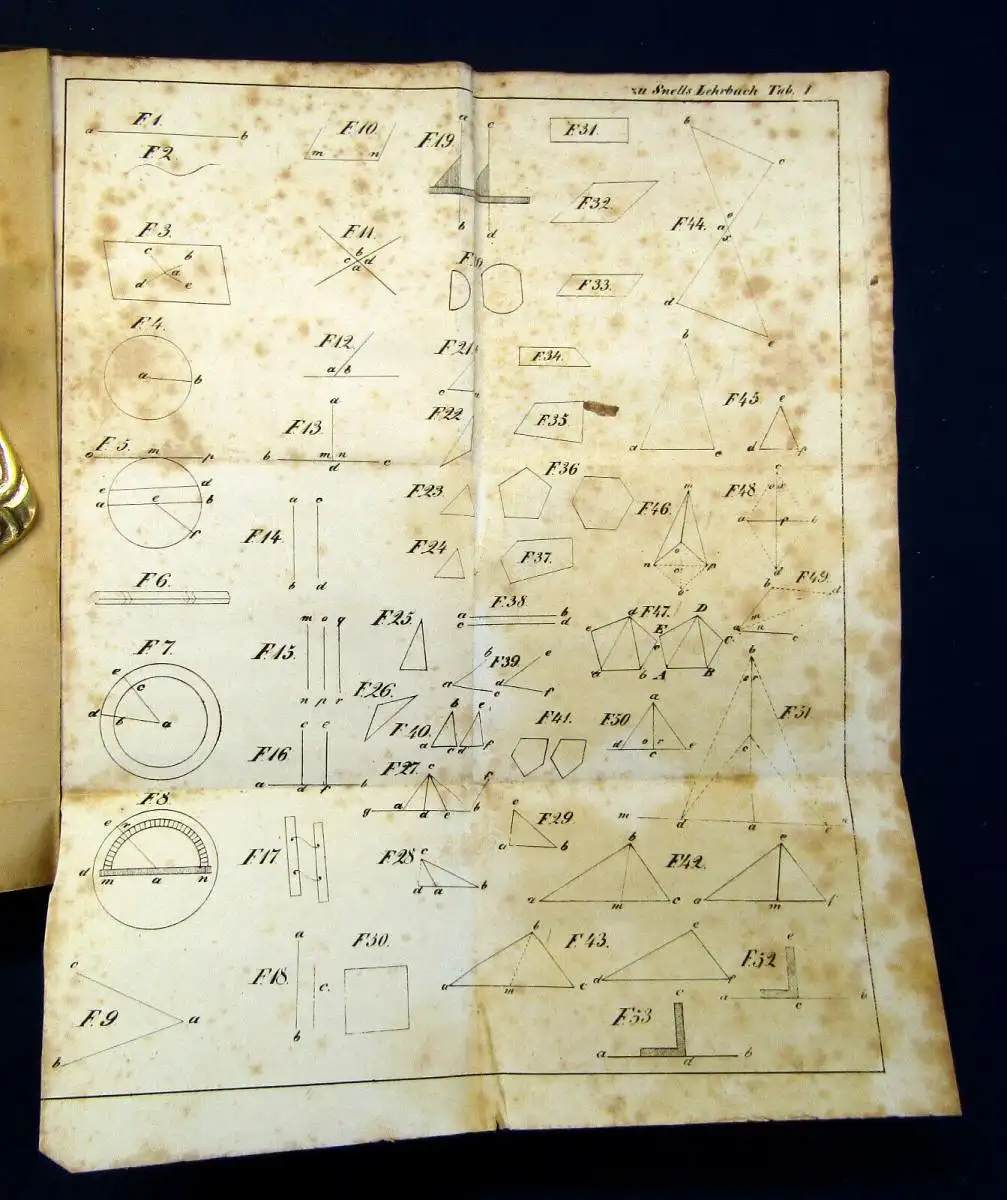 zu Snells Lehrbuch Tab. I
F.1.
a b
F.2
F.3.
c b
a
d e
F.4.
a b
F.5.
o m p
c d
a e b
f
F.6.
F.7.
e
c
d b a
F.8.
e
d m a n
F.9
c
a
b
F.10.
m n
F.11.
b
c d
a
F.12.
a b
F.13.
a
b m n c
d
F.14.
a c
b d
F.15.
m o q
n p r
F.16
c e
a d f b
F.17
F.18.
a
c.
b
F.30.
F.19.
a c
b d
F.21
c
F.22
F.23.
F.24
F.25.
F.26.
F.38.
a b
c d
F.39.
b e
a c d f
F.40.
b e
a c d f
F.27.
c f
g a d e b
F.28
c
d a b
F.29
c
a b
F.31.
F.32.
F.33.
F.34.
F.35.
F.36
F.37.
F.41.
F.42.
b e
a m c a m f
F.43.
b e
a m c d f
F.44.
b
c
o
a
x
d
e
b
a c
F.45.
e
d f
F.46.
m
o
n c p
F.47.
d D
e E c C
a b A B
F.48
c
o x
a p b
d
F.49.
b d
m
a n c
F.50
a
d o r e
c
F.51.
b
o r
c
m d a e n
F.52
e
a c b
F.53
c
a d b